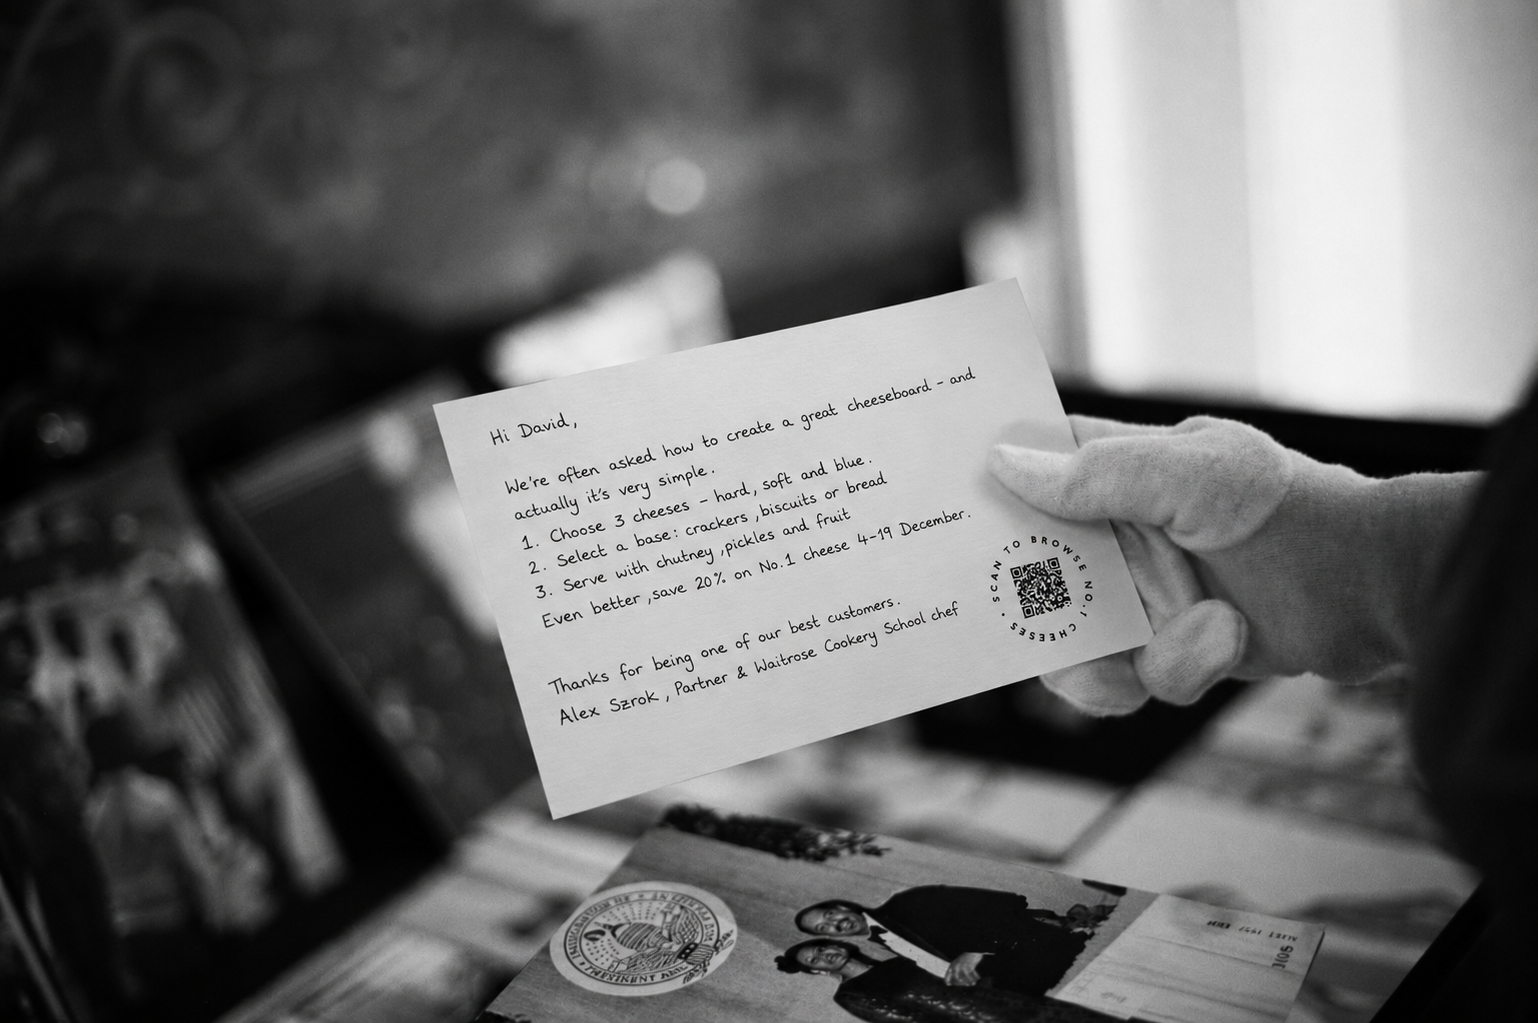 Hi David,
We're often asked how to create a great cheeseboard - and
actually it's very simple.
1. Choose 3 cheeses - hard, soft and blue.
2. Select a base: crackers ,biscuits or bread
3. Serve with chutney ,pickles and fruit
Even better ,save 20% on No.1 cheese 4-19 December.
Thanks for being one of our best customers.
Alex Szrok , Partner & Waitrose Cookery School chef
SCAN TO BROWSE NO.1 CHEESES •